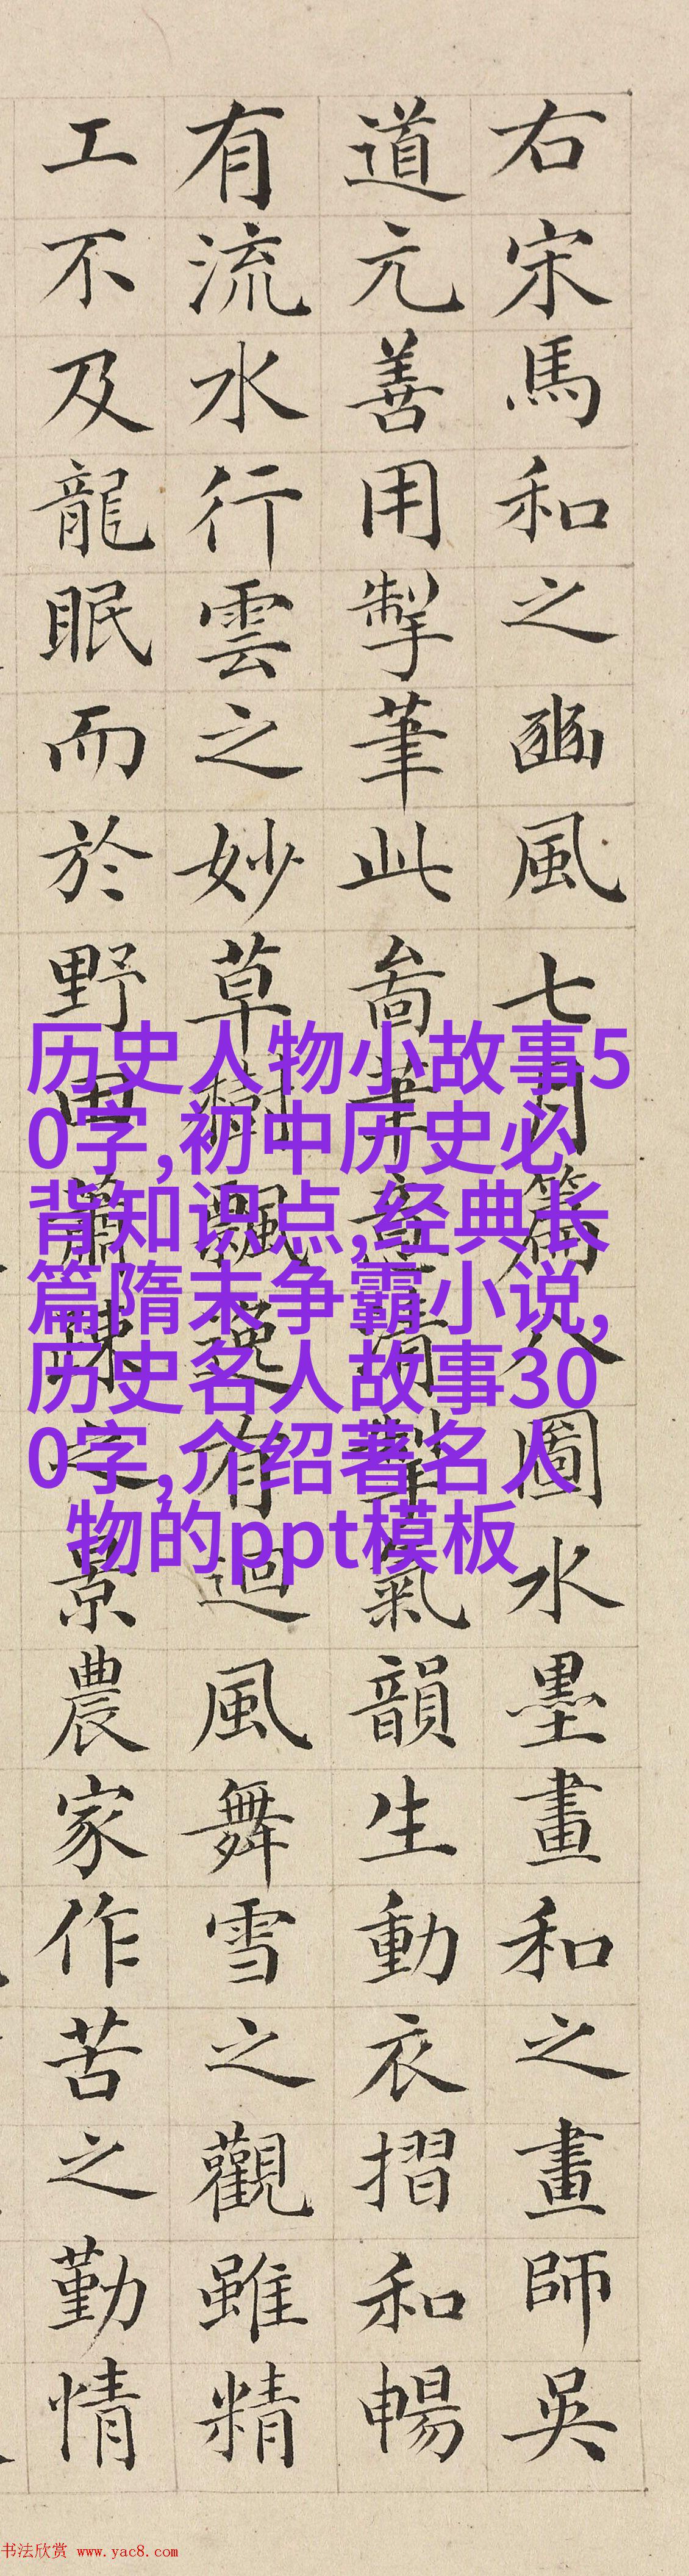 右宋馬和之豳風七月篇八圖水墨畫和之畫師吳
道元善用掣筆此啚筆意清氣韻生動衣摺和暢
有流水行雲之妙草樹飄有迴風舞雪之觀雖精
工不及龍眠而於野田蕭疎之景農家作苦之勤情
历史人物小故事5
0字,初中历史必
背知识点,经典长
篇隋末争霸小说,
历史名人故事30
0字,介绍著名人
物的ppt模板
书法欣赏 www.yac8.com